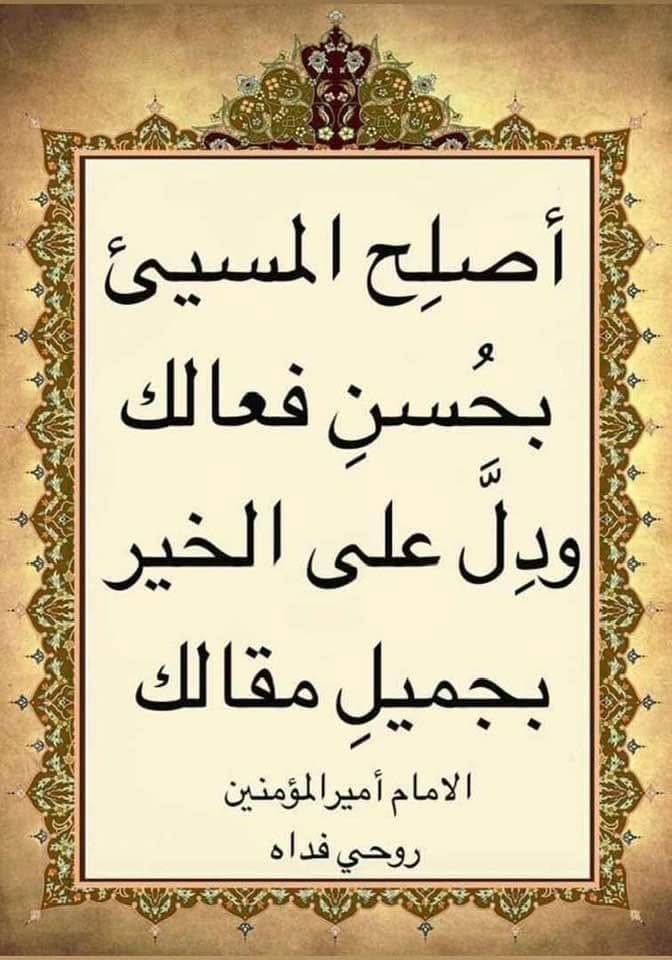 أصلِح المسيئ
بحُسنِ فعالك
ودِلَّ على الخير
بجميلِ مقالك
الامام أميرالمؤمنين
روحي فداه